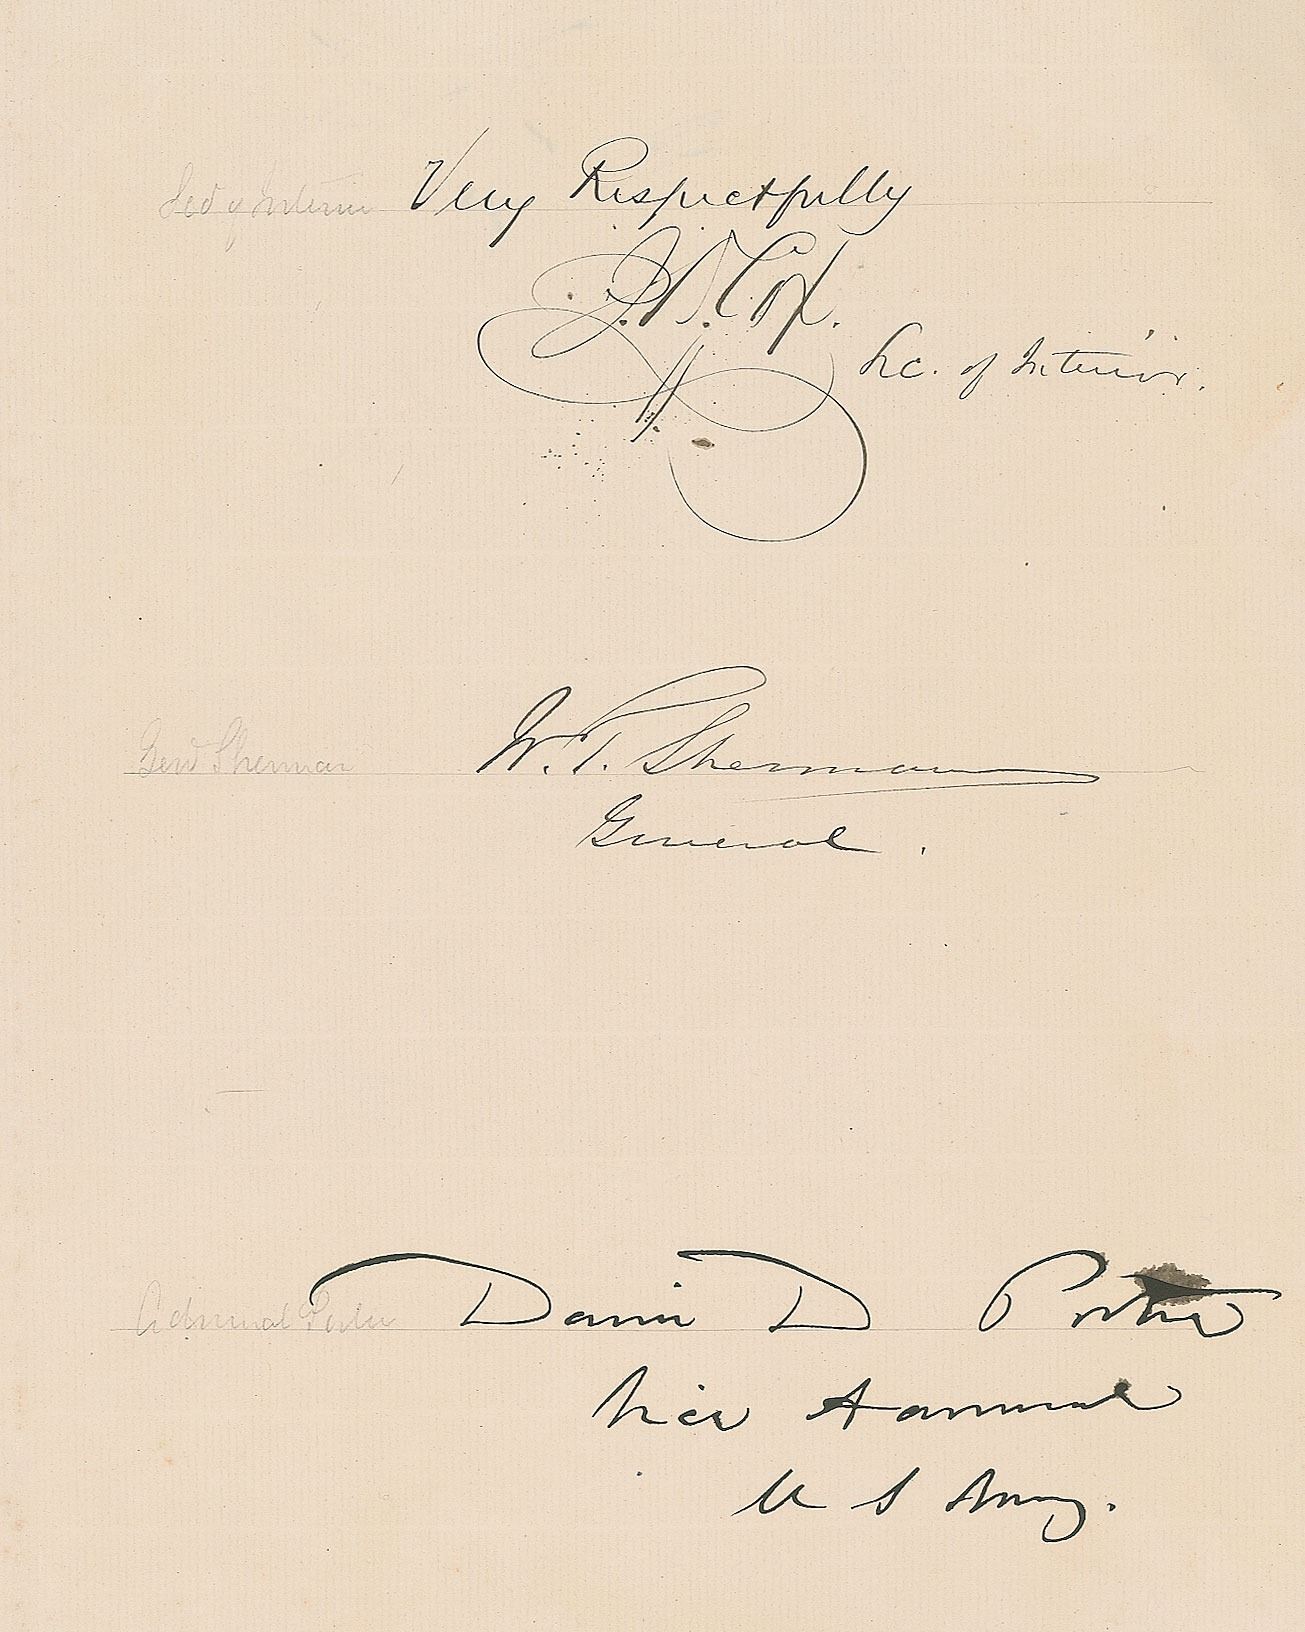 Secy of Interior Very Respectfully
J. D. Cox.
Sec. of Interior.
Genl Sherman W. T. Sherman
General.
Admiral Porter David D Porter
Vice Admiral
U S Navy.